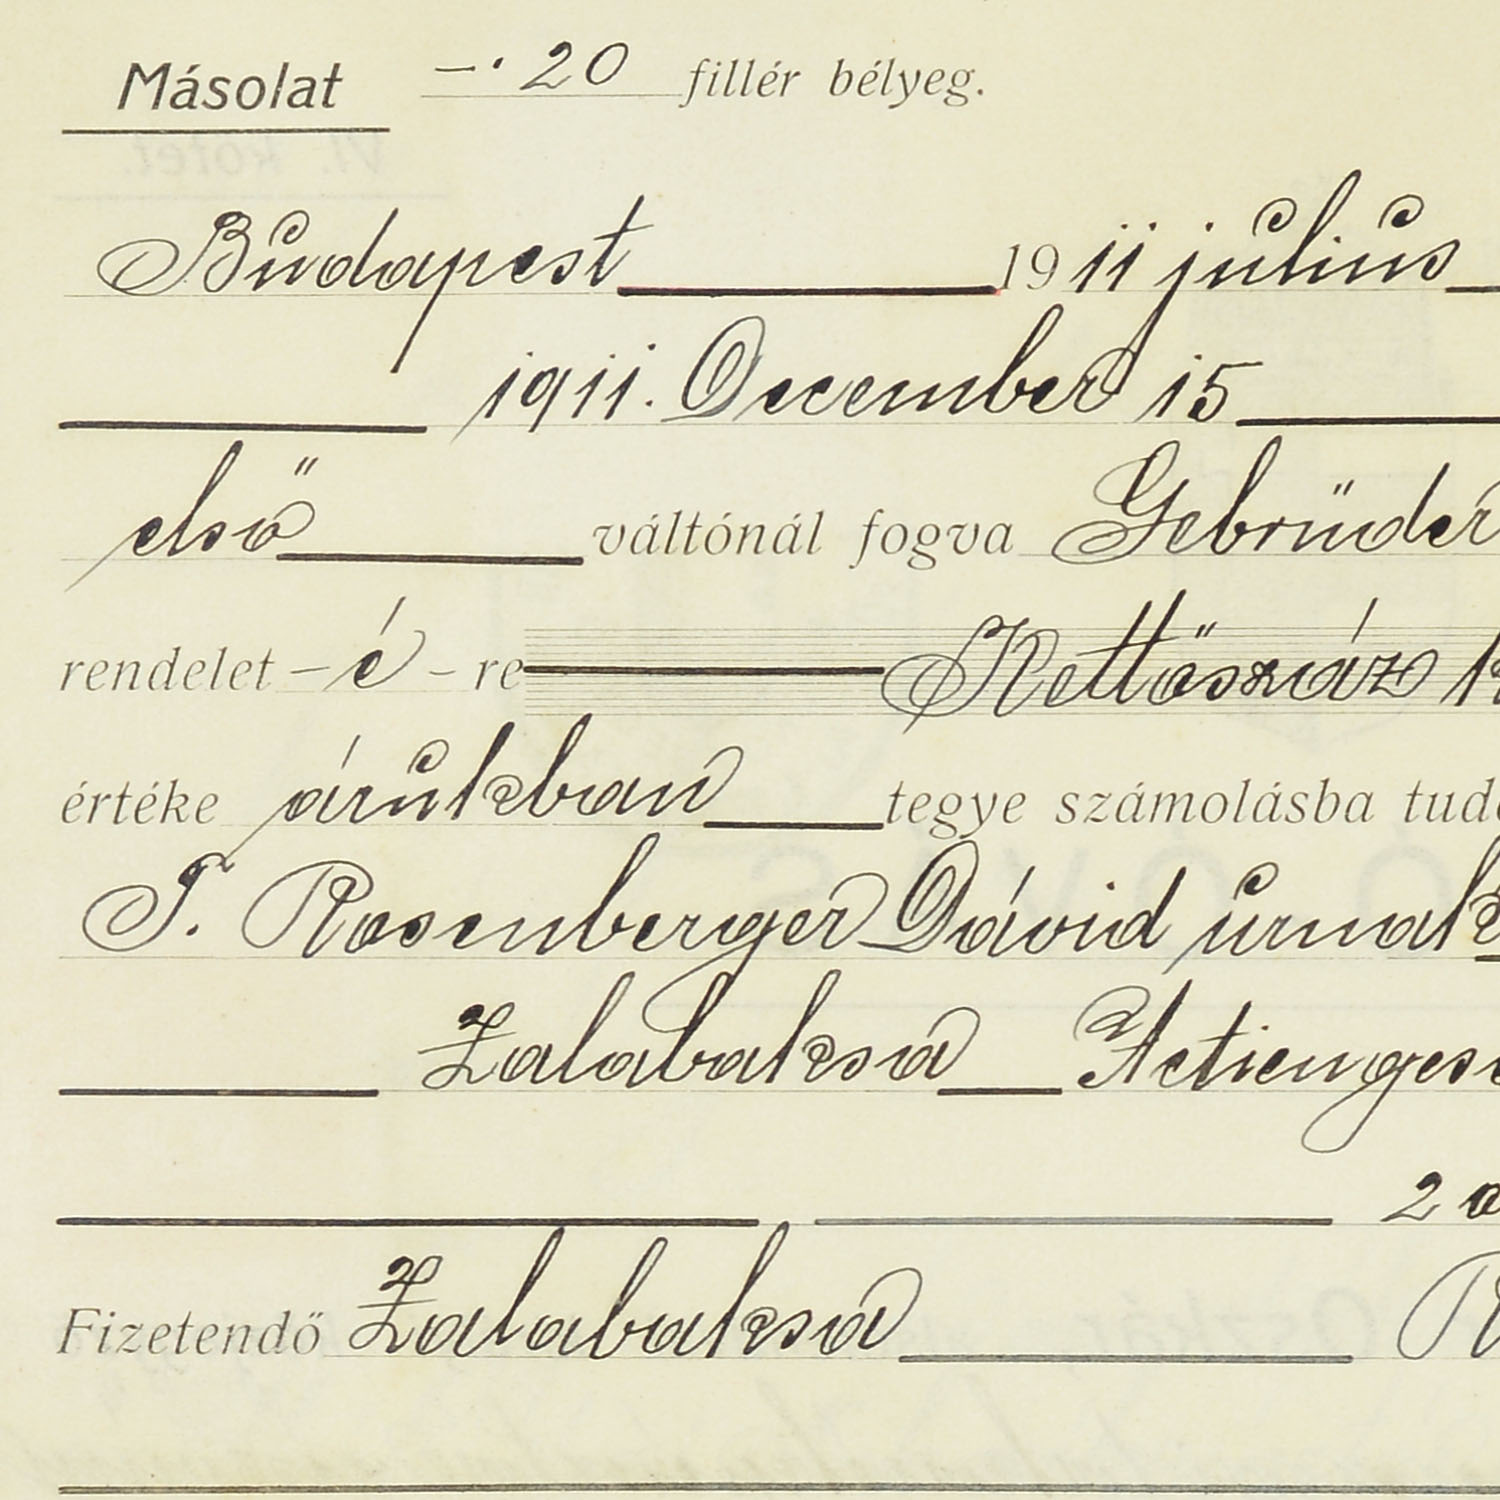 Másolat —· 20 fillér bélyeg.
Budapest 1911 július
1911. December 15
első váltónál fogva Gebrüder
rendelet – é – re Kettőszáz
értéke árukban tegye számolásba
T. Rosenberger Dávid úrnak
Zalabaksa Actienges
Fizetendő Zalabaksa